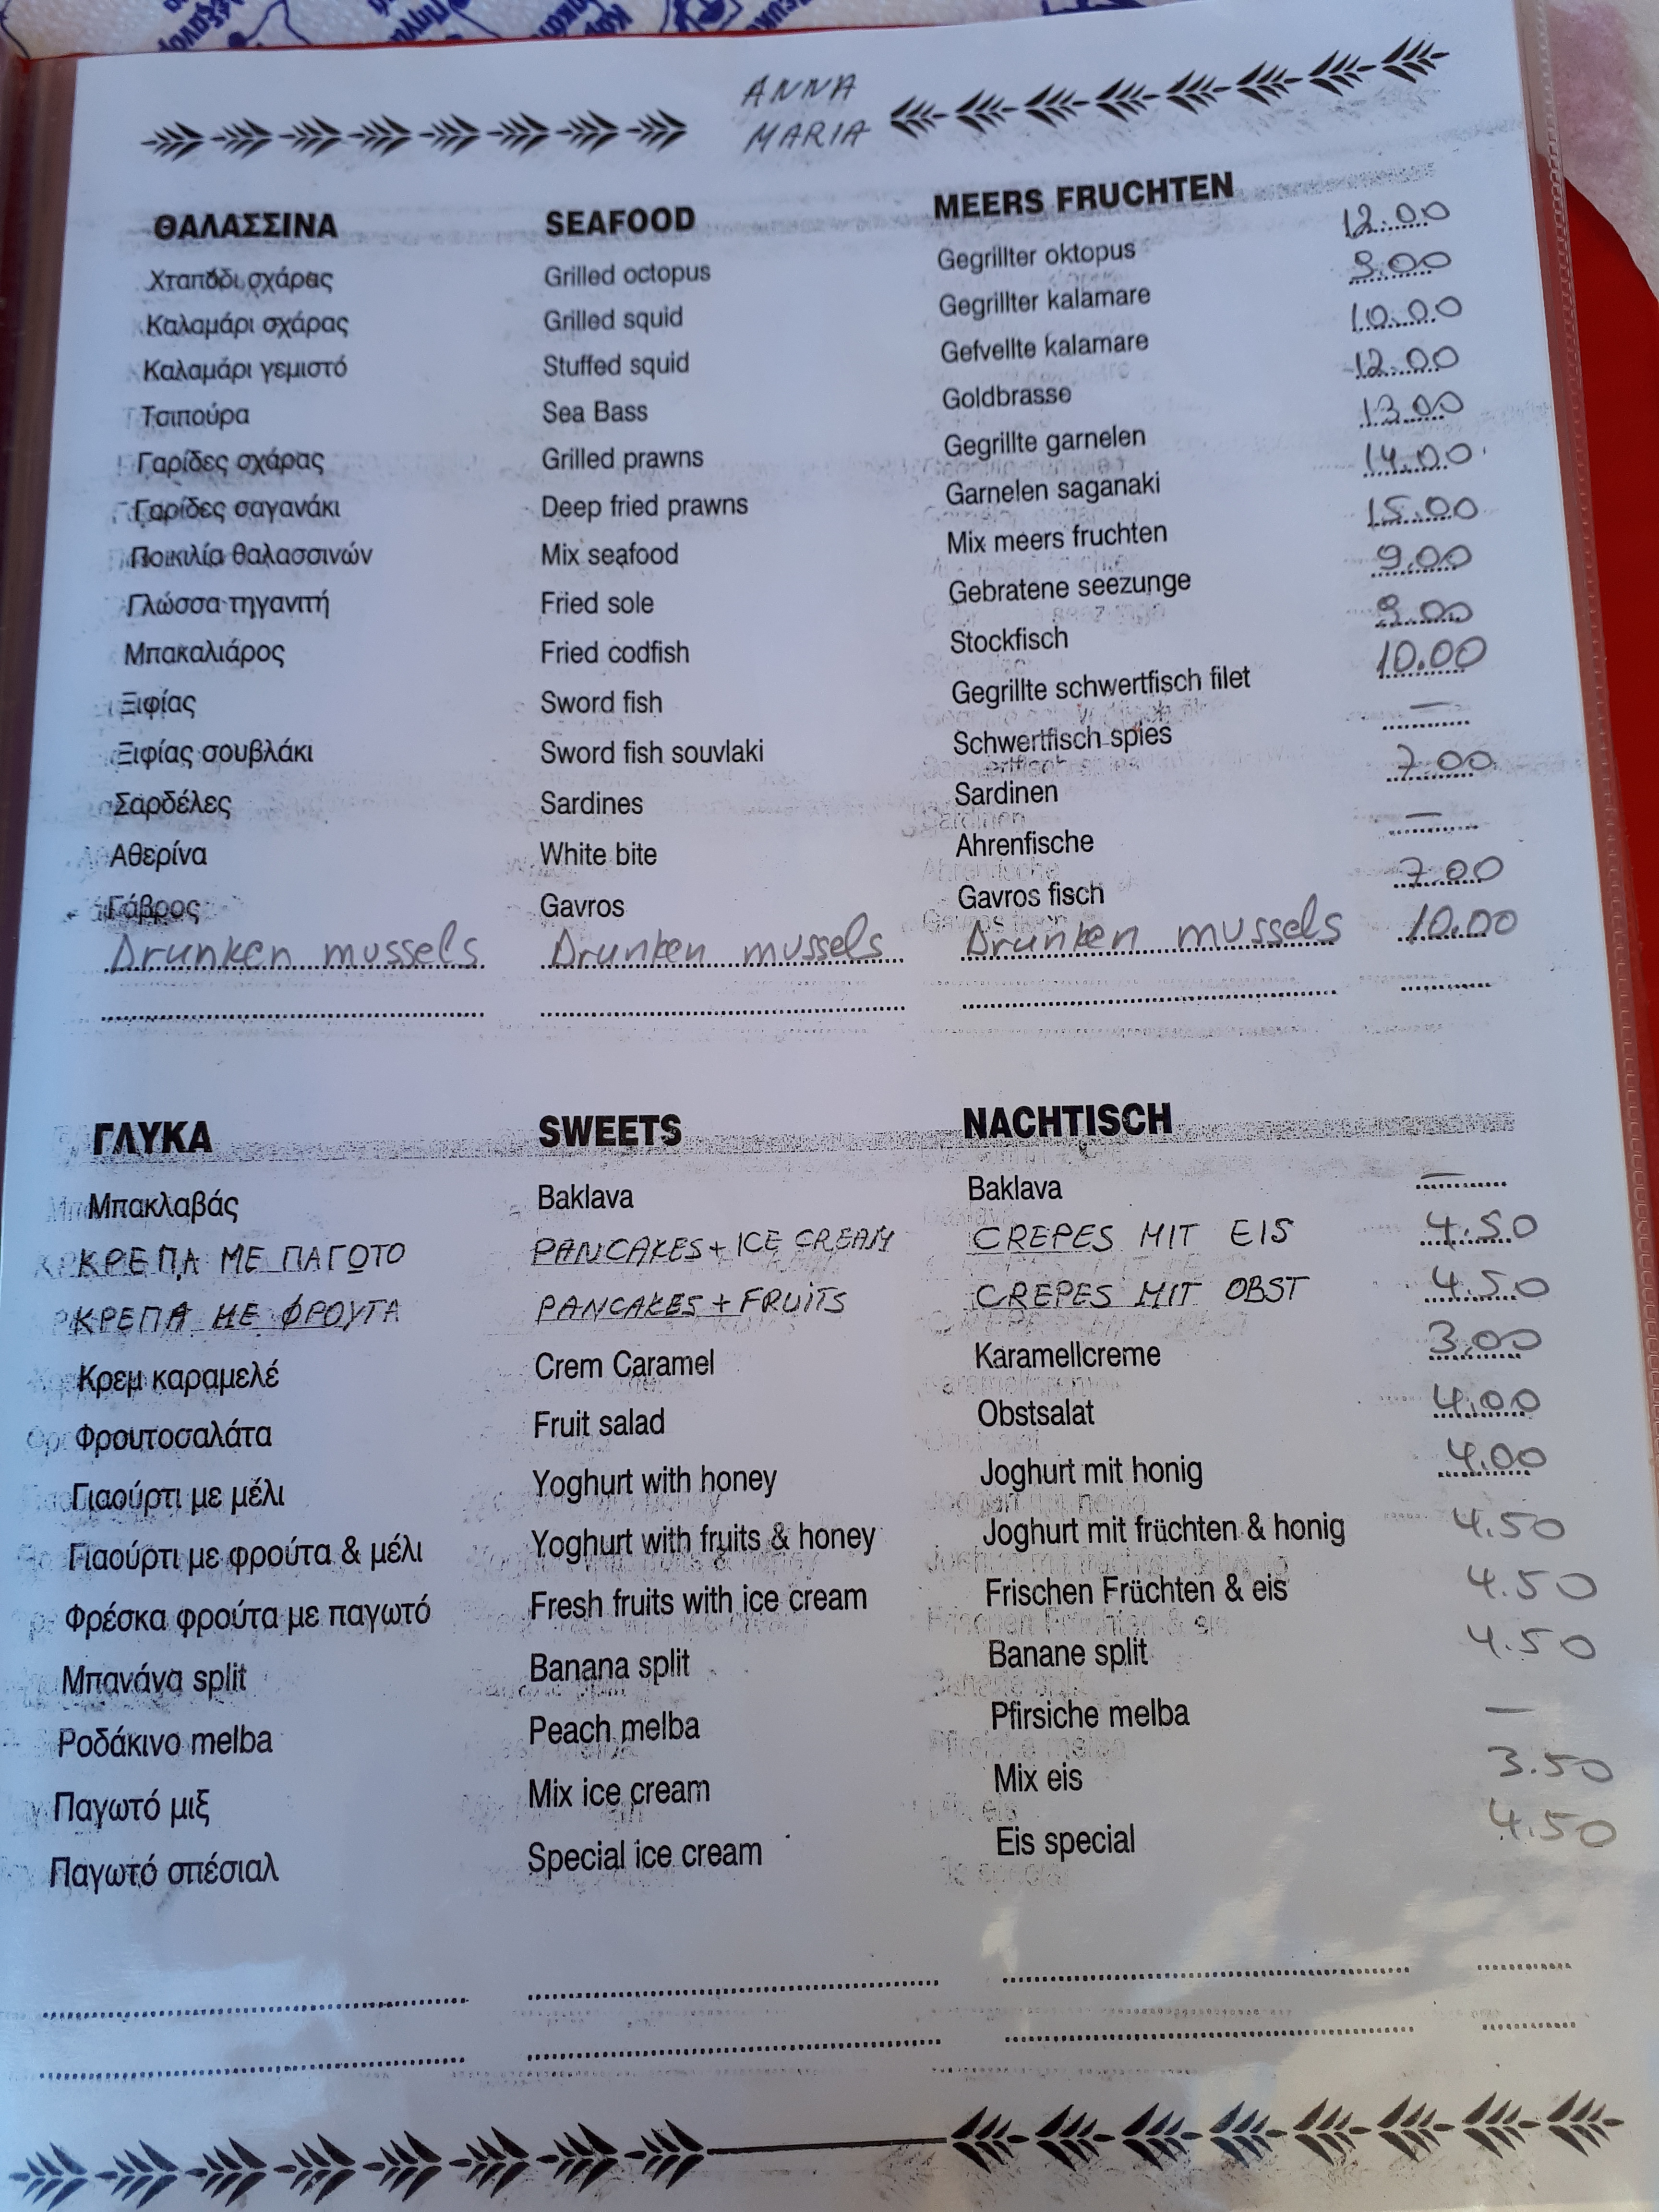 ANNA
MARIA
ΘΑΛΑΣΣΙΝΑ SEAFOOD MEERS FRUCHTEN
Χταπόδι σχάρας Grilled octopus Gegrillter oktopus 12.00
Καλαμάρι σχάρας Grilled squid Gegrillter kalamare 9.00
Καλαμάρι γεμιστό Stuffed squid Gefvellte kalamare 10.00
Τσιπούρα Sea Bass Goldbrasse 12.00
Γαρίδες σχάρας Grilled prawns Gegrillte garnelen 13.00
Γαρίδες σαγανάκι Deep fried prawns Garnelen saganaki 14.00
Ποικιλία θαλασσινών Mix seafood Mix meers fruchten 15.00
Γλώσσα τηγανιτή Fried sole Gebratene seezunge 9.00
Μπακαλιάρος Fried codfish Stockfisch 9.00
Ξιφίας Sword fish Gegrillte schwertfisch filet 10.00
Ξιφίας σουβλάκι Sword fish souvlaki Schwertfisch spies —
Σαρδέλες Sardines Sardinen 7.00
Αθερίνα White bite Ahrenfische —
Γάβρος Gavros Gavros fisch 7.00
Drunken mussels Drunken mussels Drunken mussels 10.00
ΓΛΥΚΑ SWEETS NACHTISCH
Μπακλαβάς Baklava Baklava —
ΚΡΕΠΑ ΜΕ ΠΑΓΩΤΟ PANCAKES + ICE CREAM CREPES MIT EIS 4.50
ΚΡΕΠΑ ΜΕ ΦΡΟΥΤΑ PANCAKES + FRUITS CREPES MIT OBST 4.50
Κρεμ καραμελέ Crem Caramel Karamellcreme 3.00
Φρουτοσαλάτα Fruit salad Obstsalat 4.00
Γιαούρτι με μέλι Yoghurt with honey Joghurt mit honig 4.00
Γιαούρτι με φρούτα & μέλι Yoghurt with fruits & honey Joghurt mit früchten & honig 4.50
Φρέσκα φρούτα με παγωτό Fresh fruits with ice cream Frischen Früchten & eis 4.50
Μπανάνα split Banana split Banane split 4.50
Ροδάκινο melba Peach melba Pfirsiche melba —
Παγωτό μιξ Mix ice cream Mix eis 3.50
Παγωτό σπέσιαλ Special ice cream Eis special 4.50